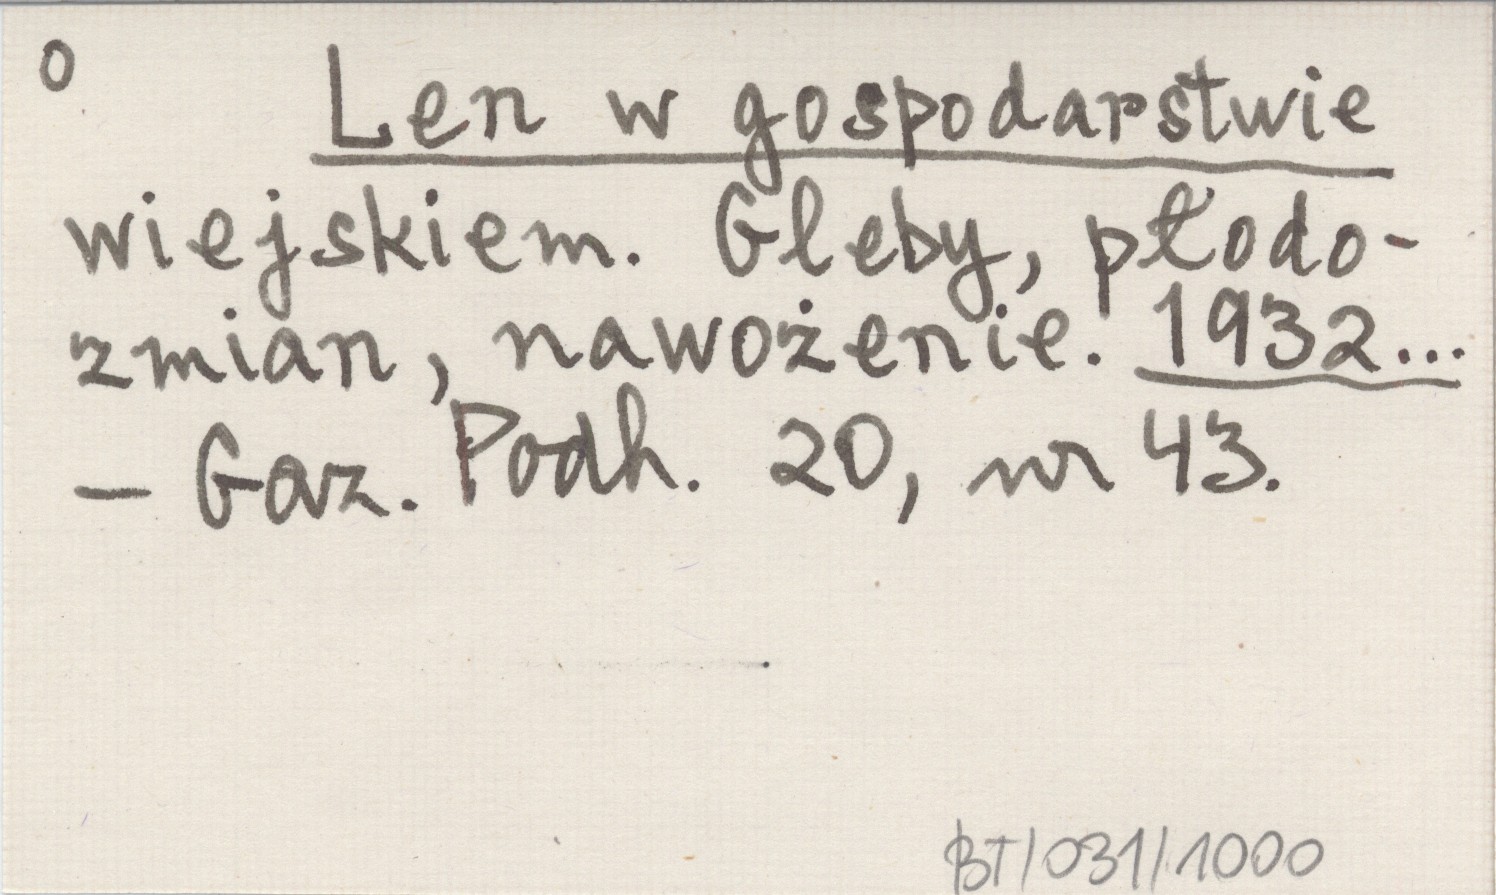 0
Len w gospodarstwie
wiejskiem. Gleby, płodo-
zmian, nawożenie. 1932...
- Gaz. Podh. 20, nr 43.
BT/031/1000